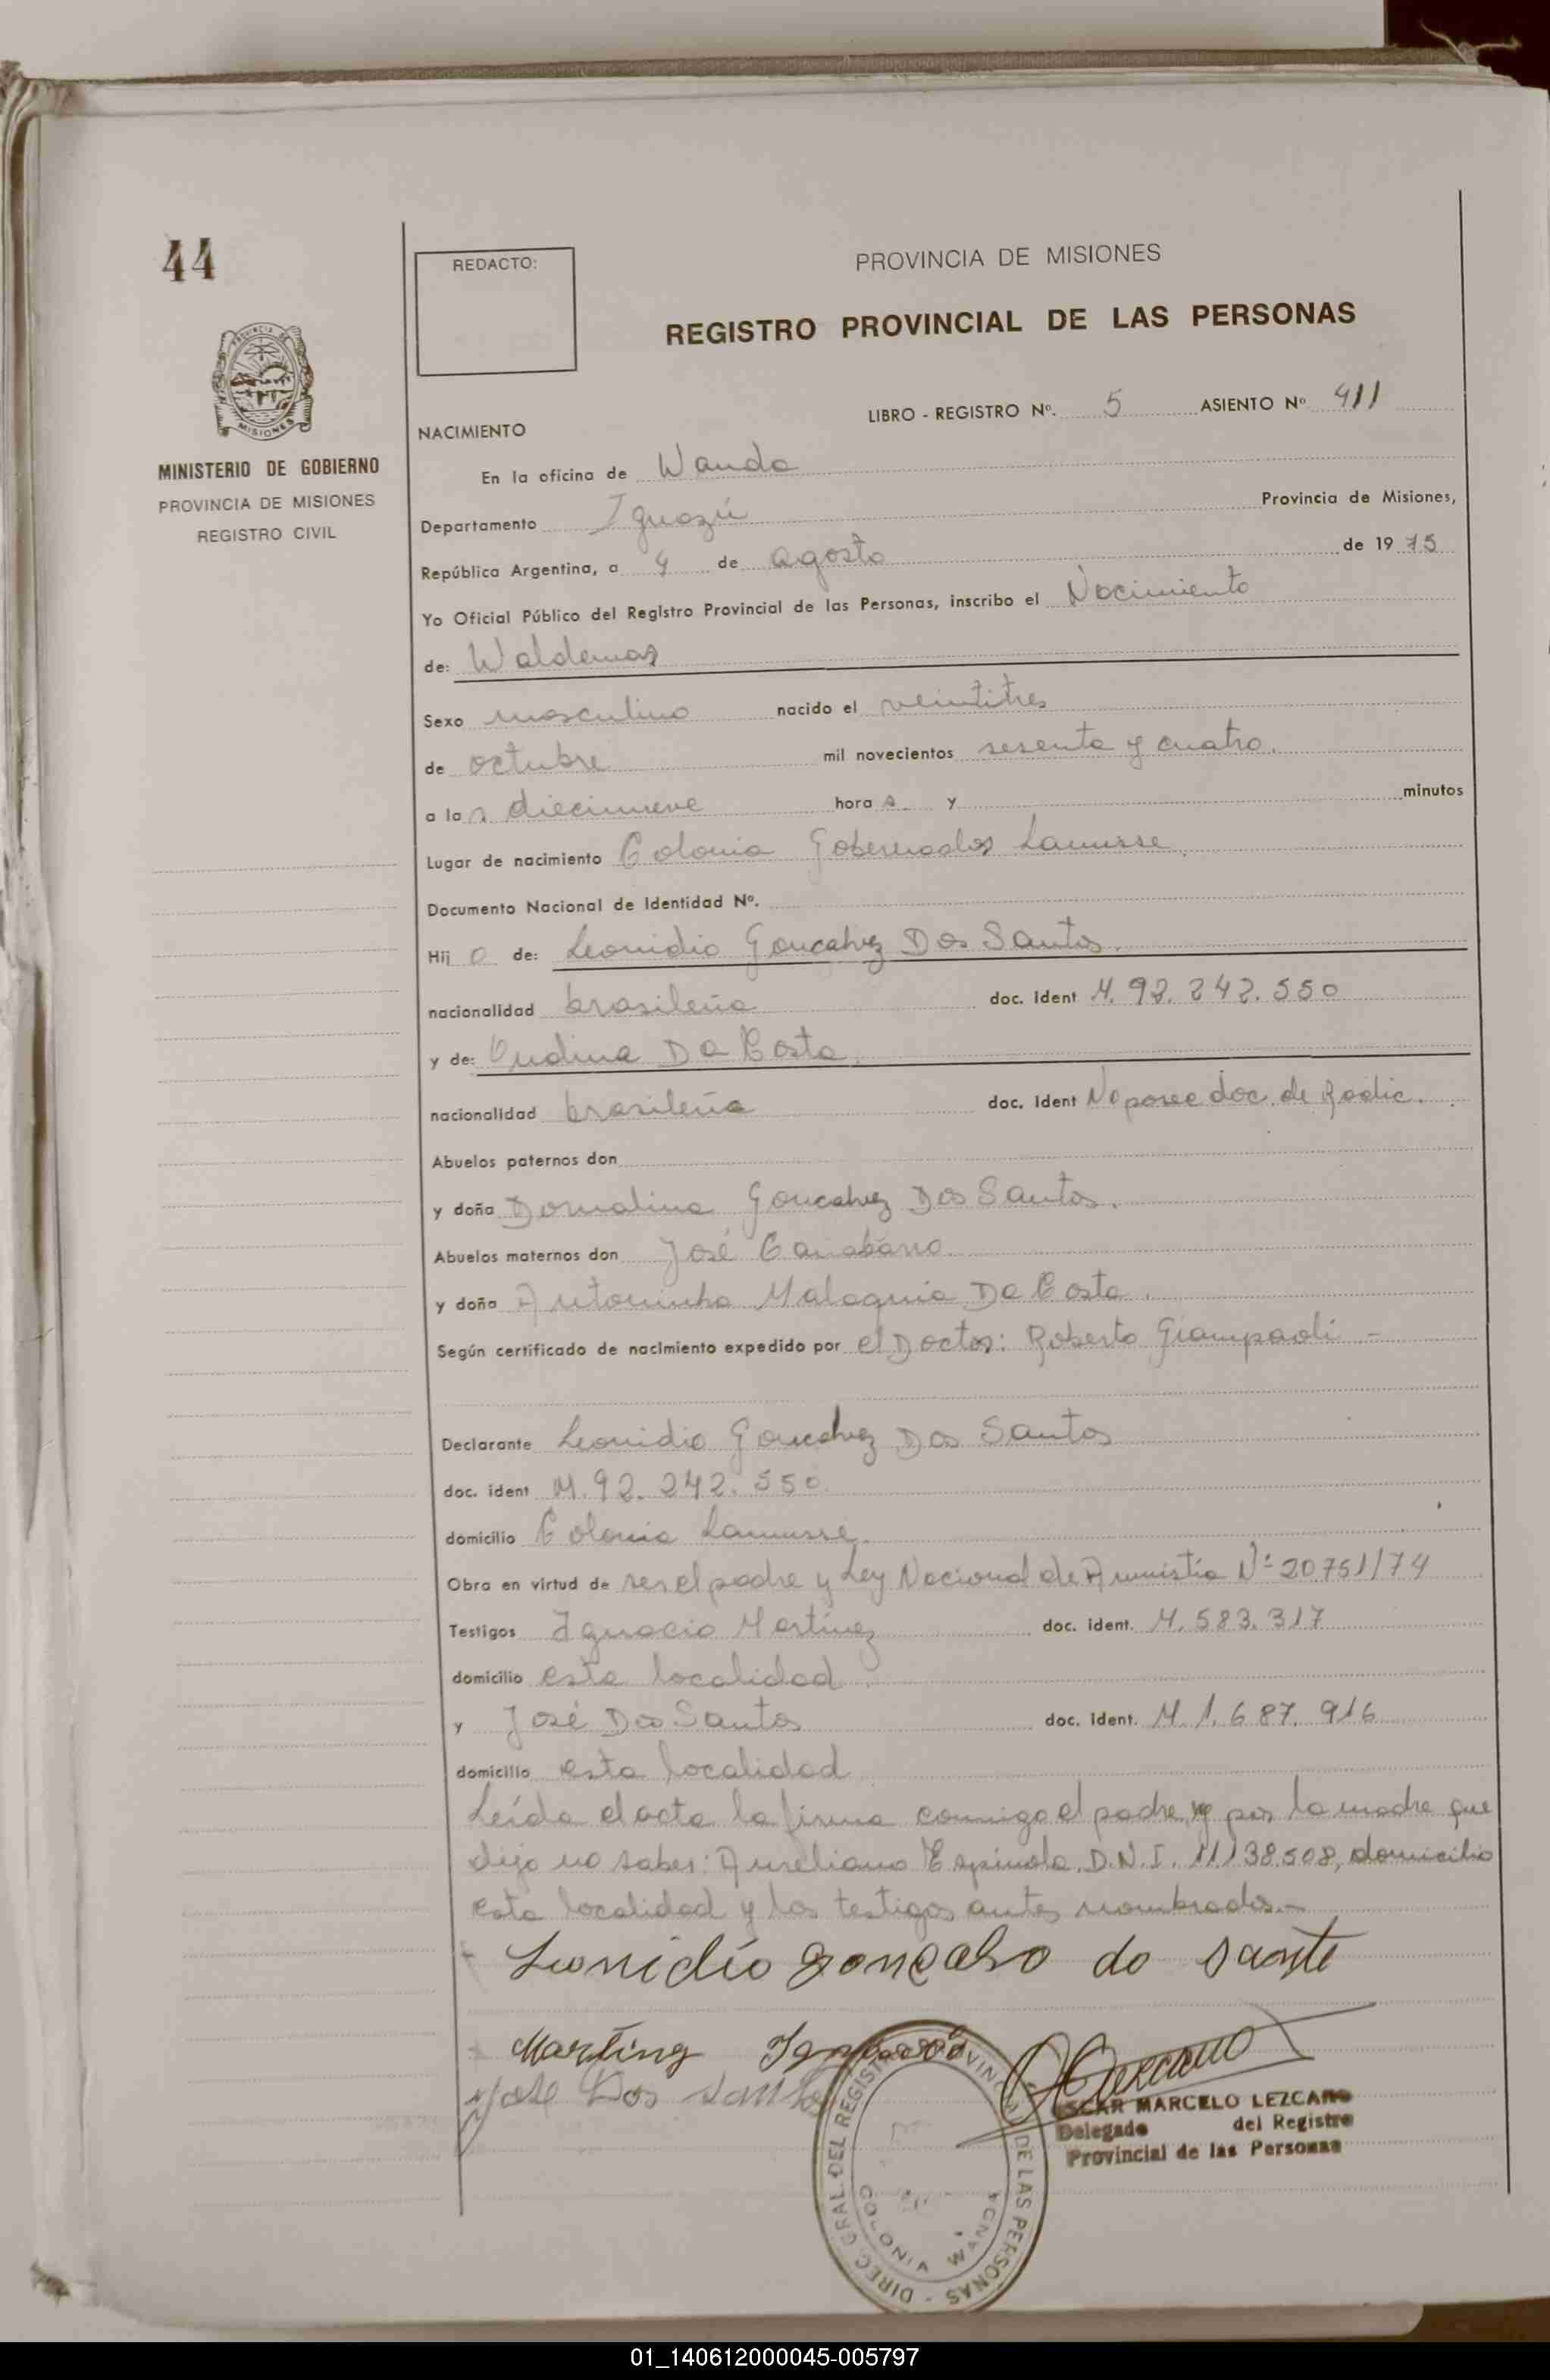 44
REDACTO:
PROVINCIA DE MISIONES
REGISTRO PROVINCIAL DE LAS PERSONAS
PROVINCIA DE
MISIONES
MINISTERIO DE GOBIERNO
PROVINCIA DE MISIONES
REGISTRO CIVIL
LIBRO - REGISTRO Nº. 5 ASIENTO Nº 411
NACIMIENTO
En la oficina de Wanda
Departamento Iguazú Provincia de Misiones,
República Argentina, a 4 de agosto de 1975
Yo Oficial Público del Registro Provincial de las Personas, inscribo el Nacimiento
de: Waldemar
Sexo masculino nacido el veintitres
de octubre mil novecientos sesenta y cuatro.
a las diecinueve horas y minutos
Lugar de nacimiento Colonia Gobernador Lanusse
Documento Nacional de Identidad Nº.
Hijo de: Leonidio Goncalvez Dos Santos.
nacionalidad brasileña doc. ident M. 92.242.550
y de: Ondina Da Costa.
nacionalidad brasileña doc. ident No posee doc. de Radic.
Abuelos paternos don
y doña Dornalina Goncalvez Dos Santos.
Abuelos maternos don José
y doña Antoninha Malaquia Da Costa.
Según certificado de nacimiento expedido por el Doctor: Roberto Giampaoli -
Declarante Leonidio Goncalvez Dos Santos
doc. ident M. 92.242.550.
domicilio Colonia Lanusse.
Obra en virtud de ser el padre y Ley Nacional de Amnistía Nº 20.751/74
Testigos Ignacio Martinez doc. ident. M. 583.317
domicilio esta localidad.
y José Dos Santos doc. ident. M. 1.687.916
domicilio esta localidad
Leída el acta la firma conmigo el padre, y por la madre que
dijo no saber: Aureliano Espinola D.N.I. 11.138.508, domicilio
esta localidad y los testigos antes nombrados.-
Leonidio gonçalvo do sante
Martinez Ignacio
Jose Dos Santos
DIREC. GRAL. DEL REGISTRO PROVINCIAL DE LAS PERSONAS -
COLONIA WANDA
OSCAR MARCELO LEZCANO
Delegado del Registro
Provincial de las Personas
01_140612000045-005797